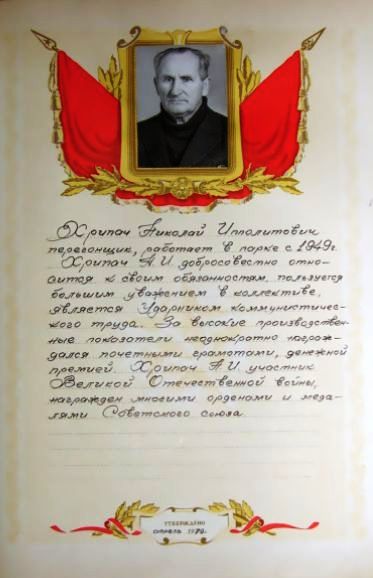 Хрипач Николай Ипполитович
перегонщик, работает в парке с 1949г.
Хрипач Н.И. добросовестно отно-
сится к своим обязанностям, пользуется
большим уважением в коллективе,
является Ударником Коммунистичес-
кого труда. За высокие производствен-
ные показатели неоднократно награж-
дался почетными грамотами, денежной
премией. Хрипач Н.И. участник
Великой Отечественной войны,
награжден многими орденами и меда-
лями Советского союза.
УТВЕРЖДЕНО
апрель 1979г.